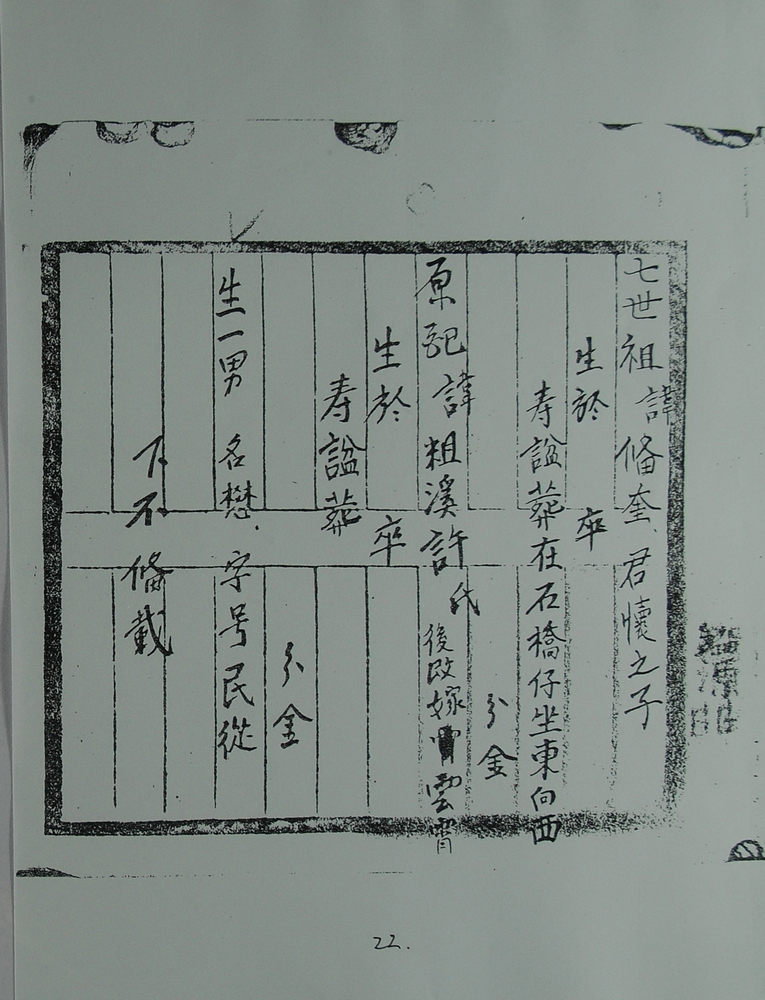 七世祖 諱 偹奎 君懷之子
生於 卒
寿 諡 葬在石橋仔坐東向西
分金
原配 諱 粗溪許氏 後改嫁 雲霄
生於 卒
寿 諡 葬
分金
生一男 名懋 字号民從
下不偹載
22.